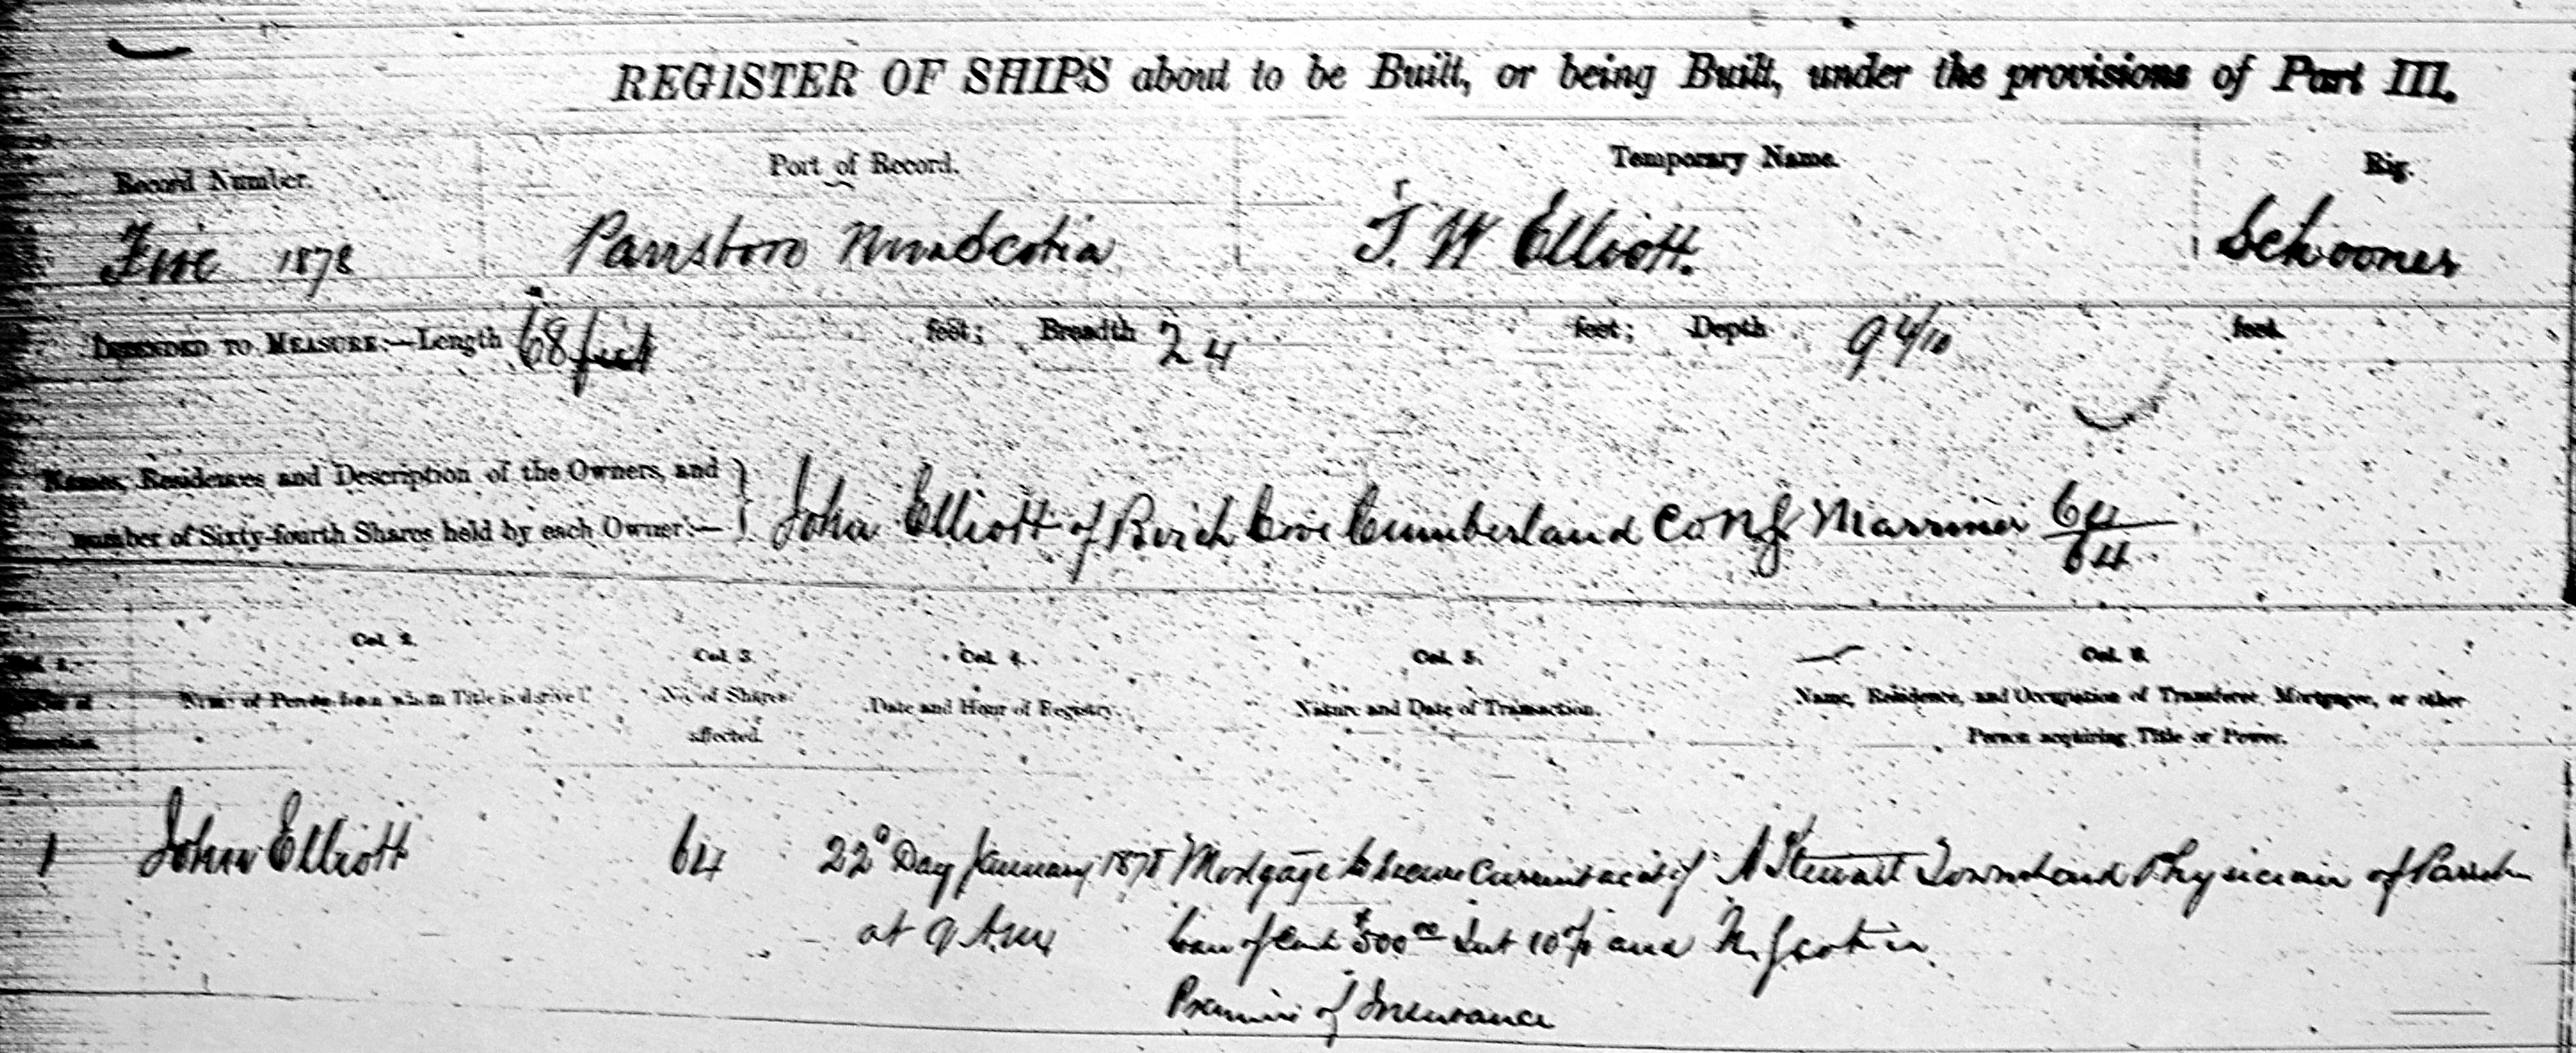 REGISTER OF SHIPS about to be Built, or being Built, under the provisions of Part III.
Record Number. Port of Record. Temporary Name. Rig.
Five 1878 Parrsboro Nova Scotia J. W Elliott. Schooner
INTENDED TO MEASURE:—Length 68 feet feet; Breadth 24 feet; Depth 9 4/10 feet.
Names, Residences and Description of the Owners, and
number of Sixty-fourth Shares held by each Owner:— } John Elliott of Birch Cove Cumberland Co NS Marriner 64/64
Col. 1. Col. 2. Col. 3. Col. 4. Col. 5. Col. 6.
Number of Name of Person from whom Title is derived. No. of Shares Date and Hour of Registry. Nature and Date of Transaction. Name, Residence, and Occupation of Transferee, Mortgagee, or other
Transaction. affected. Person acquiring Title or Power.
1 John Elliott 64 22d Day January 1878 Mortgage to secure Current acct of A Stewart Townshend Physician of
at 9 A.M. loan of $500.00 Int 10% and N. Scotia
Premium of Insurance